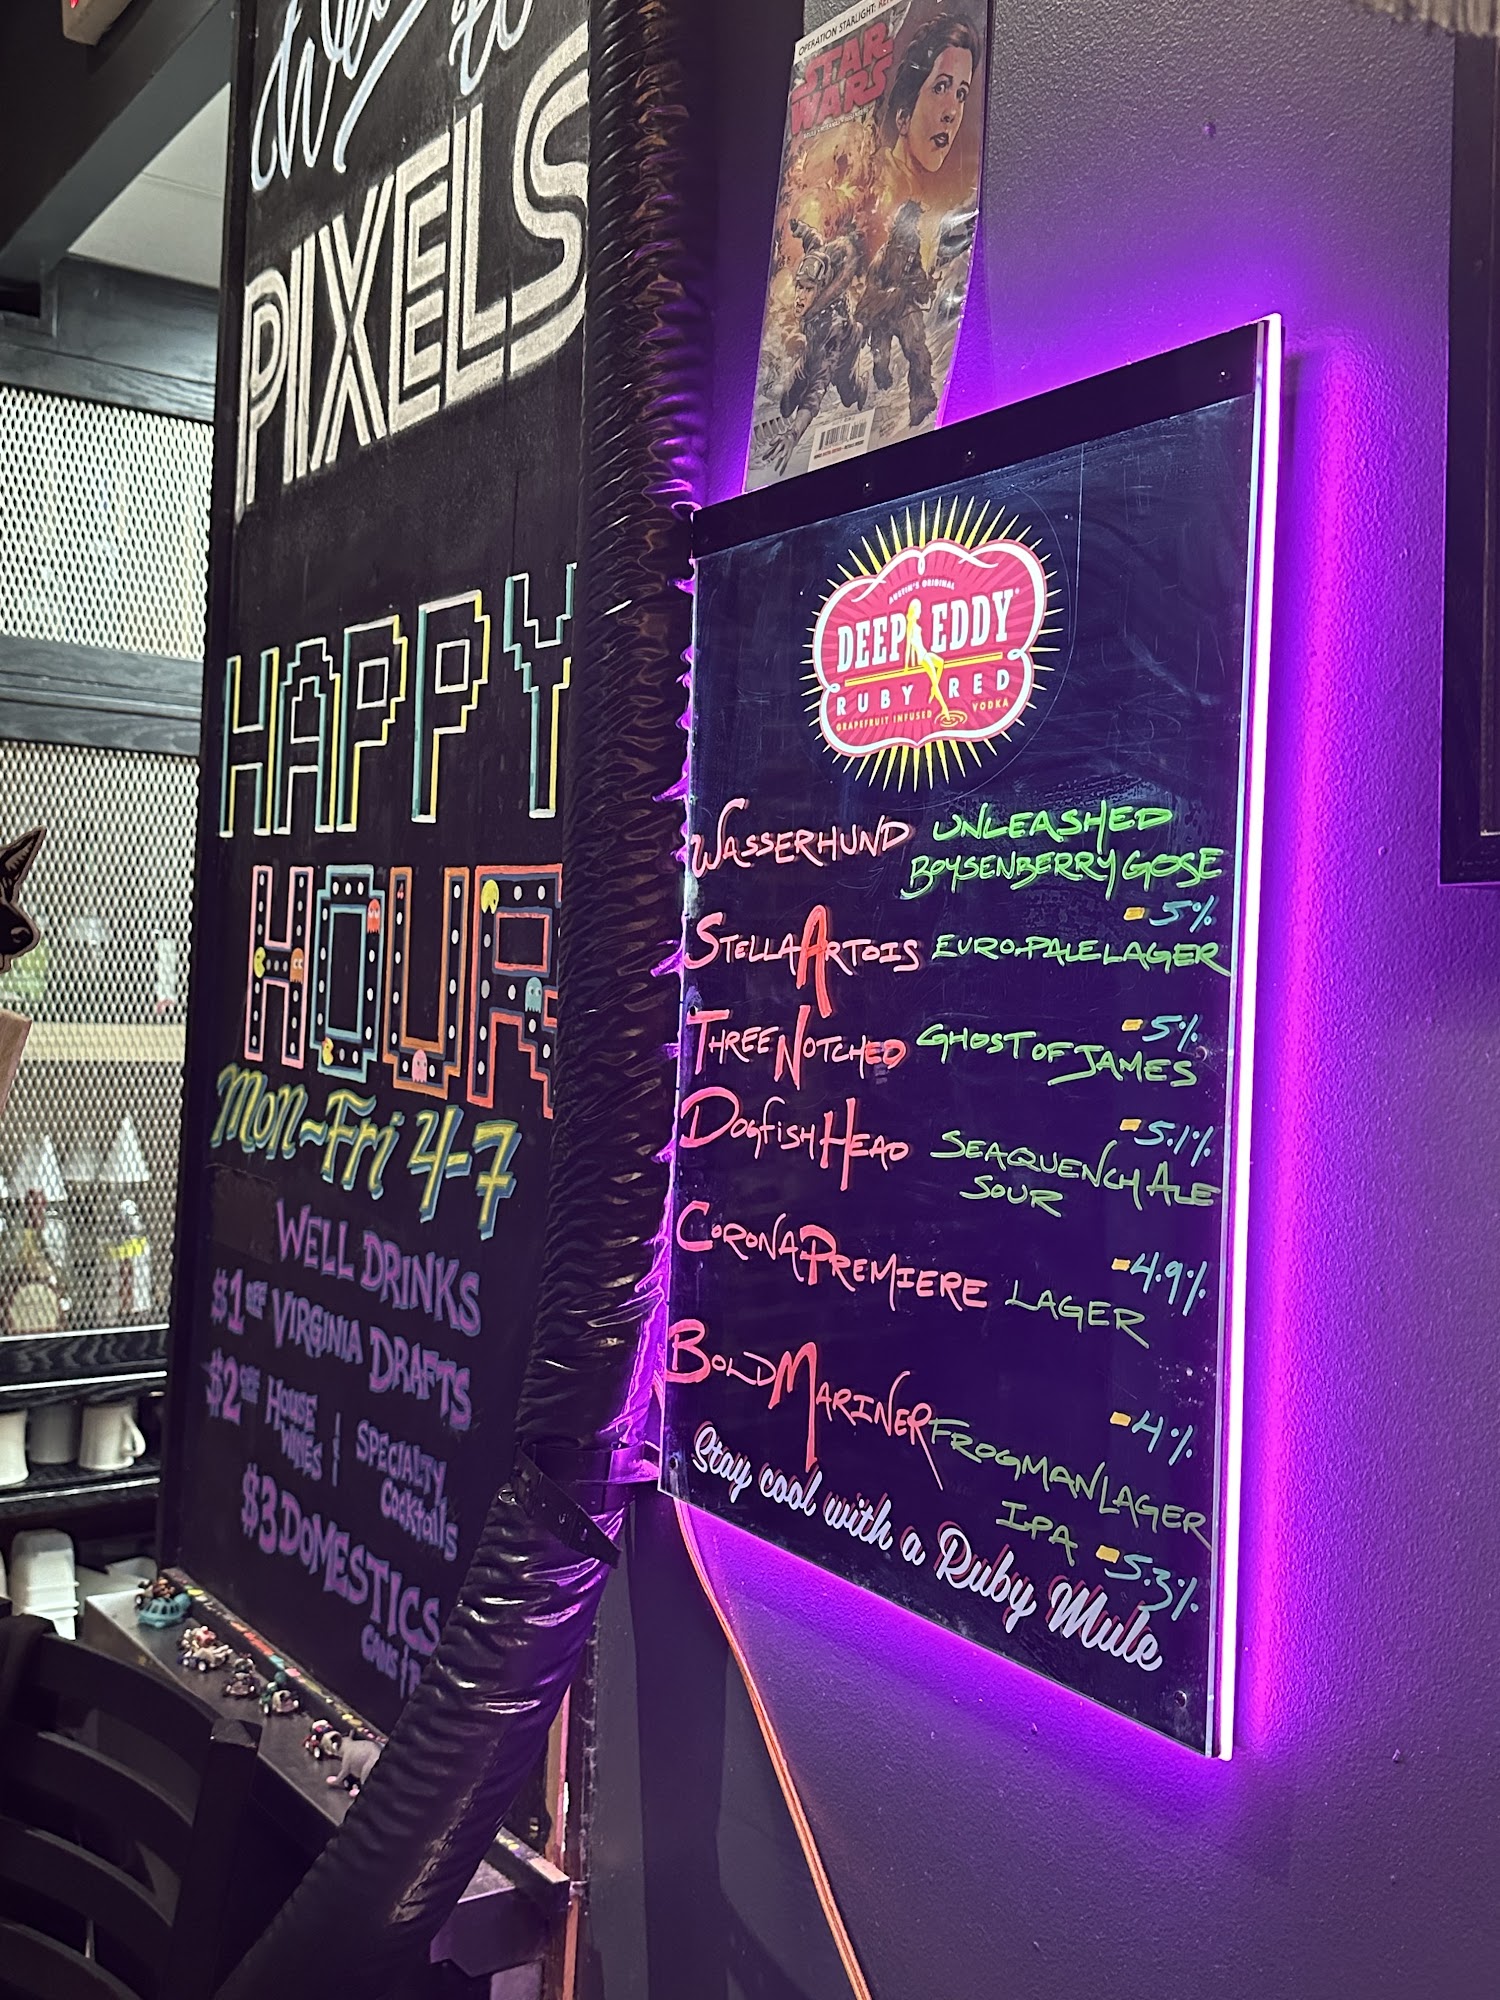 PIXELS
HAPPY
HOUR
Mon~Fri 4-7
WELL DRINKS
$1 OFF VIRGINIA DRAFTS
$2 OFF HOUSE WINES & SPECIALTY COCKTAILS
$3 DOMESTICS
OPERATION STARLIGHT:
STAR
WARS
AUSTIN'S ORIGINAL
DEEP EDDY
RUBY RED
GRAPEFRUIT INFUSED VODKA
WASSERHUND UNLEASHED
BOYSENBERRY GOSE
- 5%
STELLA ARTOIS EURO.PALE LAGER
- 5%
THREE NOTCHED GHOST OF JAMES
- 5.1%
DOGFISH HEAD SEAQUENCH ALE
SOUR
- 4.9%
CORONA PREMIERE LAGER
- 4%
BOLD MARINER FROGMAN LAGER
IPA - 5.3%
Stay cool with a Ruby Mule